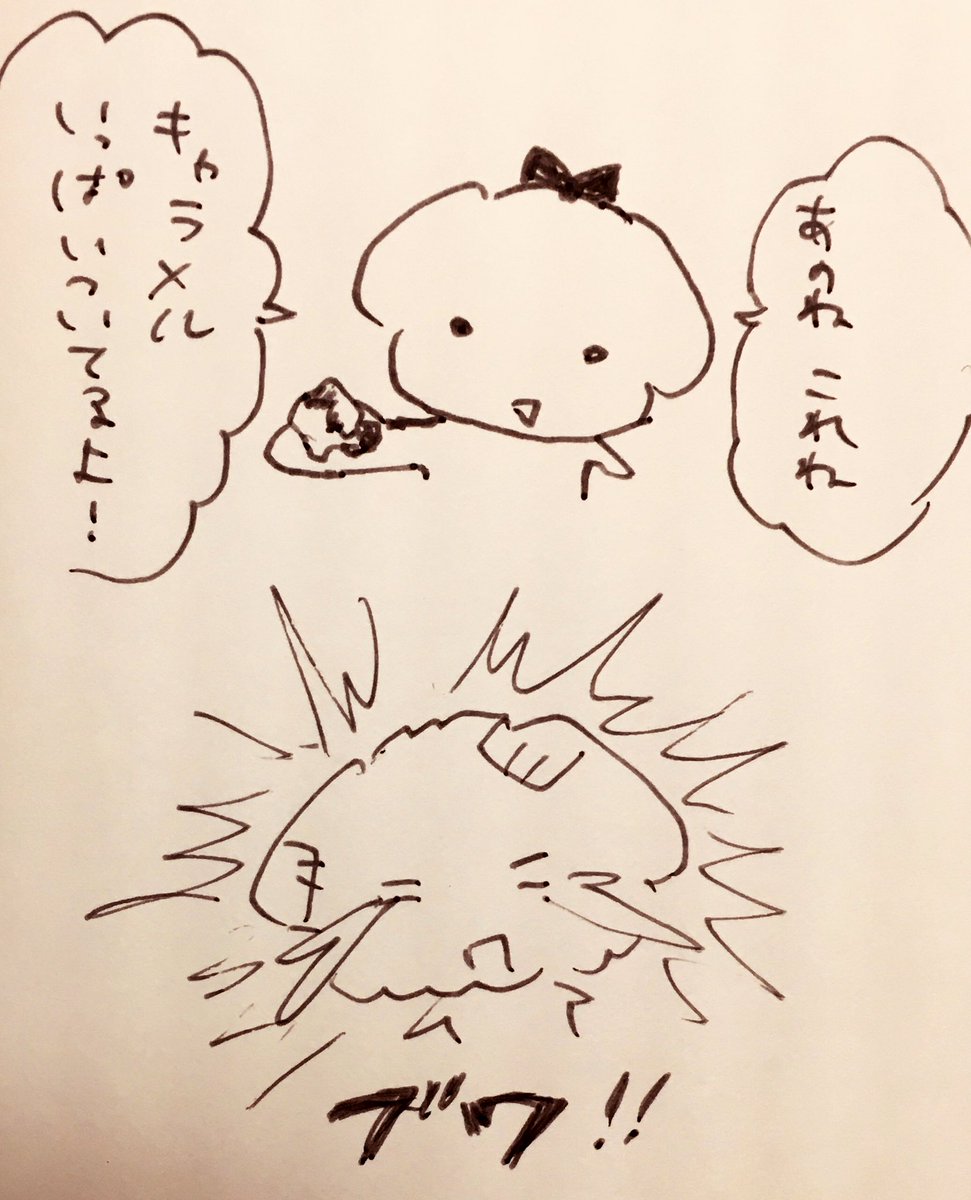 あのね これね
キャラメル
いっぱいついてるよー!
ブワ!!